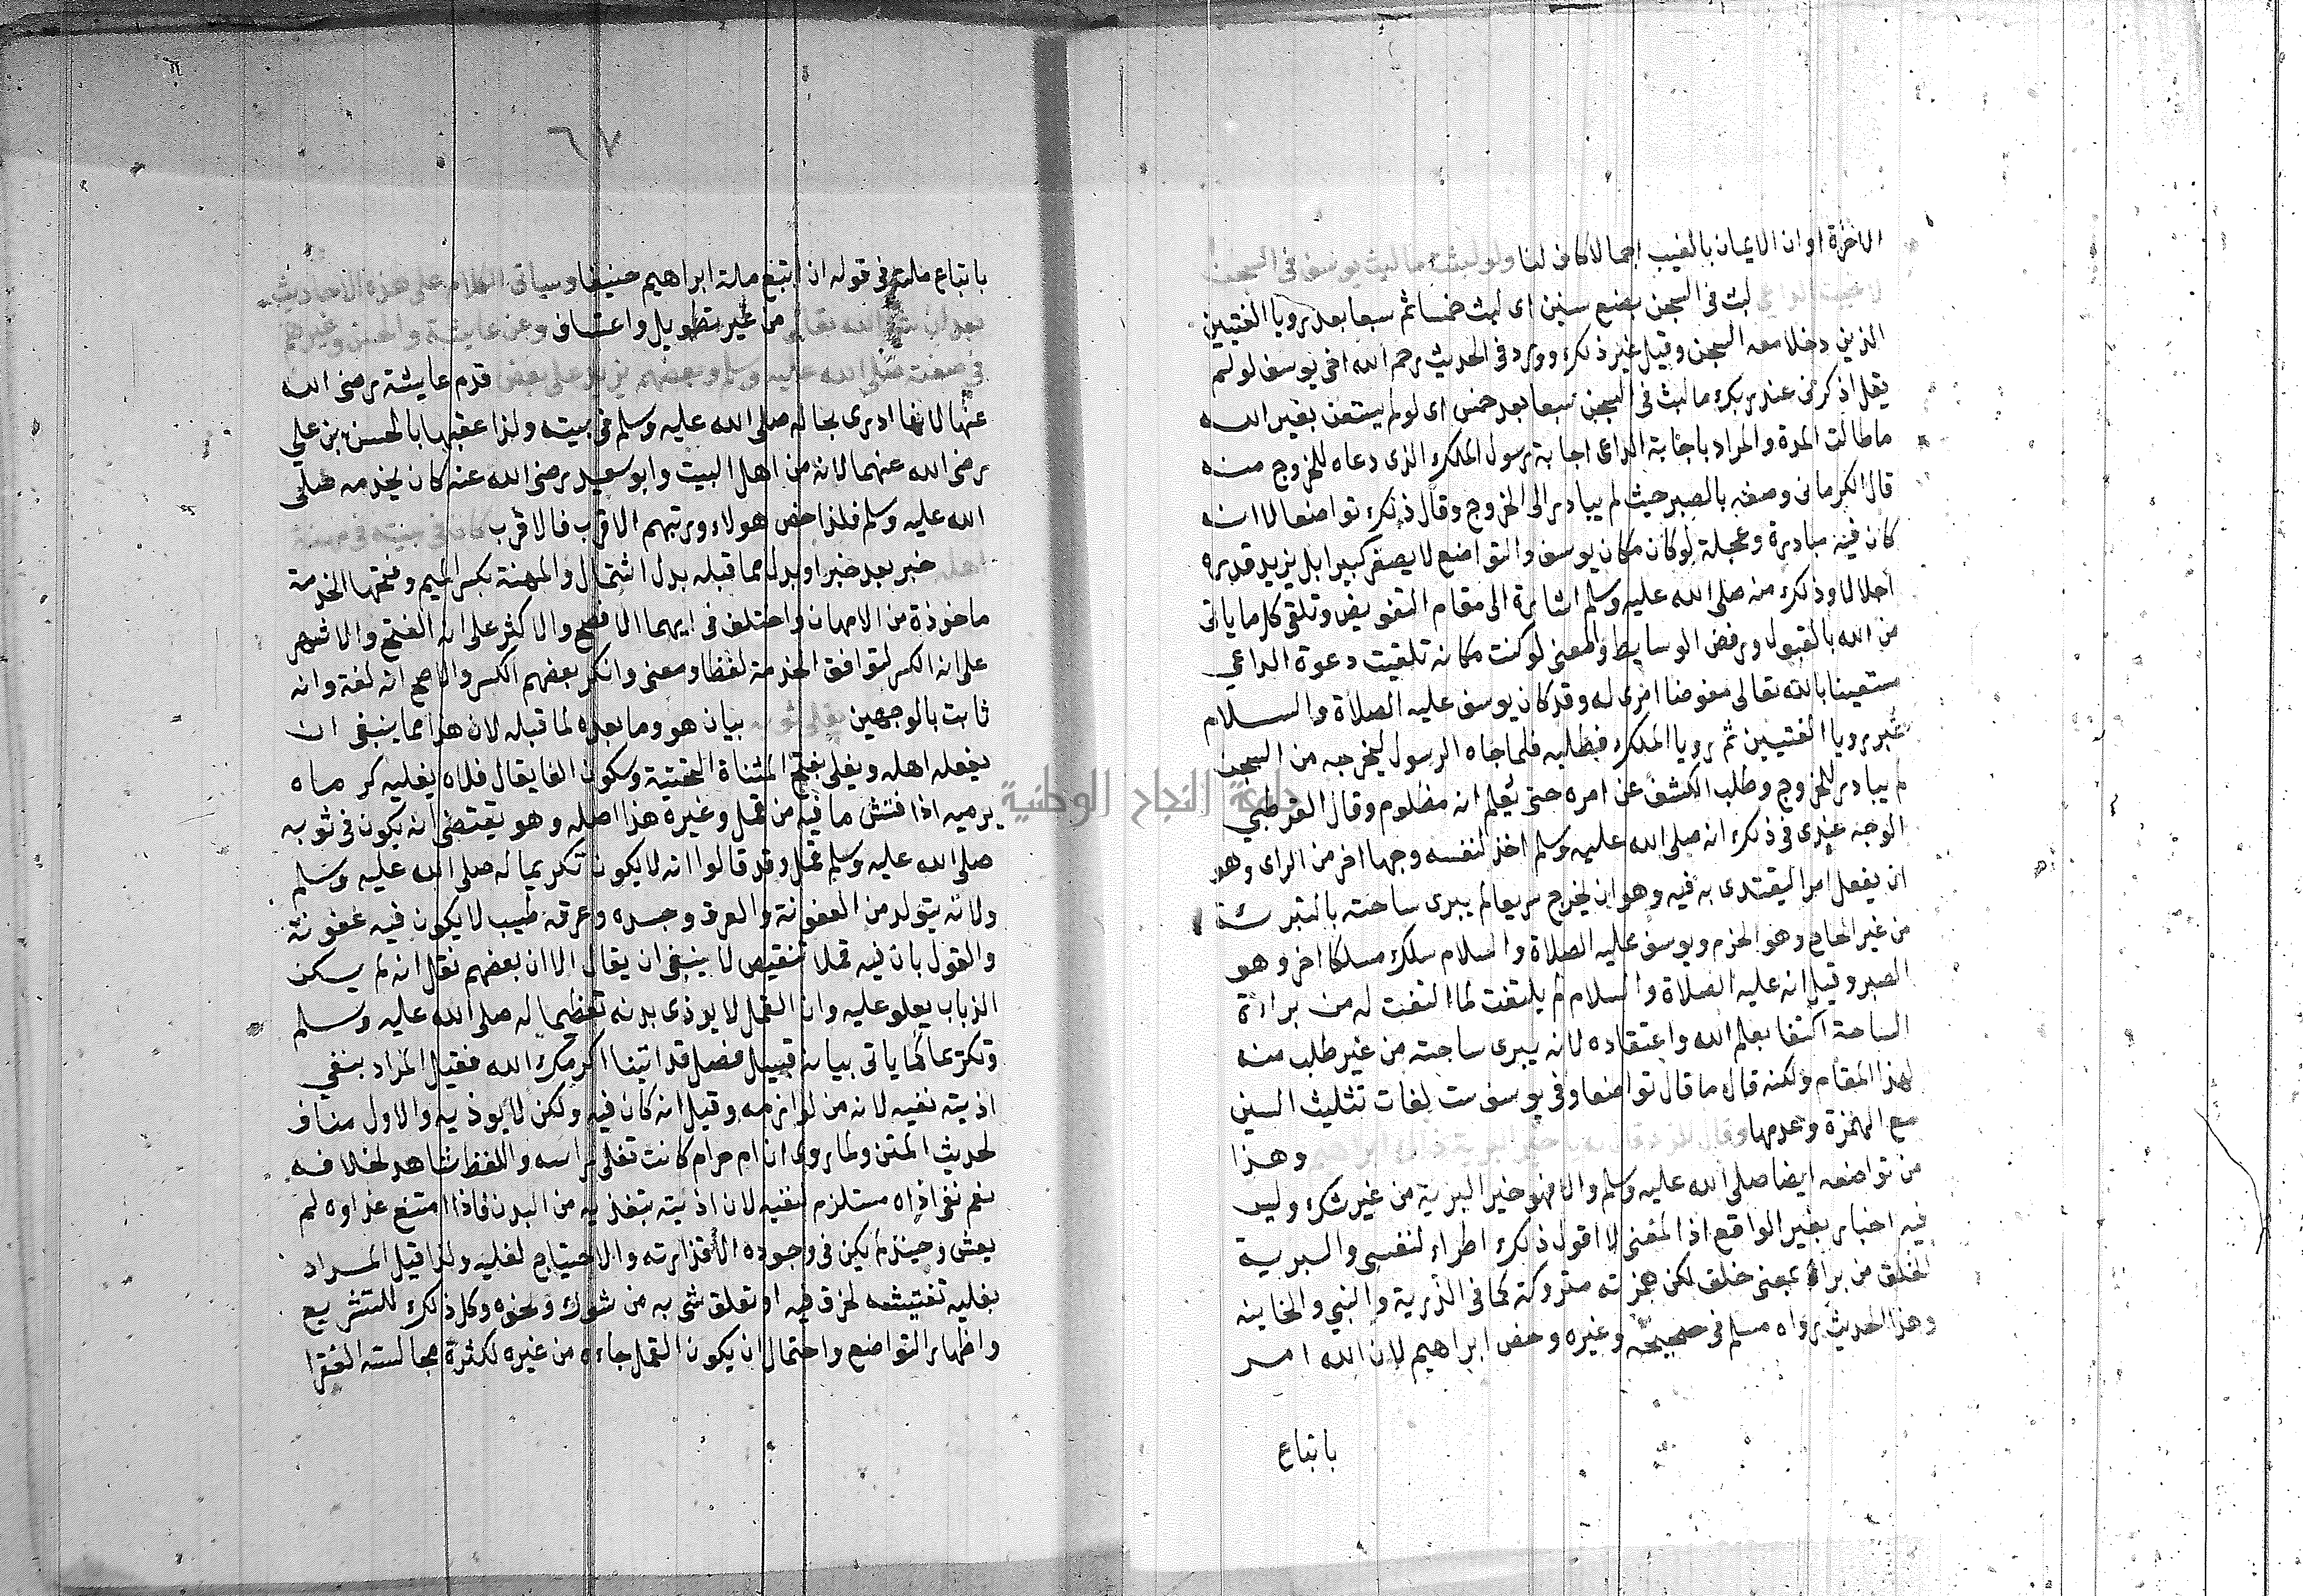 الاخرة او ان الايمان بالغيب اجمالا كان لنا ولو لبثت ما لبث يوسف في السجن
لاجبت الداعي لبث في السجن بضع سنين اى لبث خمسا ثم سبعا بعد رويا الفتيين
الذين دخلا معه السجن وقيل غير ذلك وورد في الحديث رحم الله اخى يوسف لو لم
يقل اذكرنى عند ربك ما لبث في السجن سبعا بعد خمس اى لو لم يستعن بغير الله
ما طالت المدة والمراد باجابة الداعى اجابة رسول الملك الذى دعاه للخروج منه
قال الكرمانى وصفه بالصبر حيث لم يبادر الى الخروج وقال ذلك تواضعا لا انه
كان فيه مبادرة وعجلة لو كان مكان يوسف والتواضع لا يصغر كبيرا بل يزيد قدره
اجلالا وذلك منه صلى الله عليه وسلم اشارة الى مقام التفويض وتلقى كل ما ياتى
من الله بالقبول ورفض الوسايط والمعنى لو كنت مكانه تلقيت دعوة الداعي
مستعينا بالله تعالى مفوضا امرى له وقد كان يوسف عليه الصلاة والسلام
عبر رويا الفتيين ثم رويا الملك فطلبه فلما جاه الرسول ليخرجه من السجن
لم يبادر للخروج وطلب الكشف عن امره حتى يعلم انه مظلوم وقال القرطبي
الوجه عندى في ذلك انه صلى الله عليه وسلم اخذ لنفسه وجها اخر من الراى وهو
ان يفعل امرا ليقتدى به فيه وهو ان يخرج سريعا ثم يبرى ساحته بالتبرئة
من غير الحاح وهو الحزم ويوسف عليه الصلاة والسلام سلك مسلكا اخر وهو
الصبر وقيل انه عليه الصلاة والسلام لم يلتفت لما التفت له من براءة
الساحة اكتفا بعلم الله واعتقاده لانه يبرى ساحته من غير طلب منه
لهذا المقام ولكنه قال ما قال تواضعا وفي يوسف ست لغات تثليث السين
مع الهمزة وعدمها وقال للذى قال له يا خير البرية ذاك ابراهيم وهذا
من تواضعه ايضا صلى الله عليه وسلم والا فهو خير البرية من غير شك وليس
فيه اخبار بغير الواقع اذ المعنى لا اقول ذلك اطراء لنفسى والبرية
الخلق من برا بمعنى خلق لكن همزته متروكة كما في الذرية والنبي والخابيه
وهذا الحديث رواه مسلم في صحيحه وغيره وخص ابراهيم لان الله امر
باتباع
٦٧
باتباع ملته في قوله ان اتبع ملة ابراهيم حنيفا وسياتى الكلام على هذه الاحاديث
بعد ان شا الله تعالى من غير تطويل واعتساف وعن عايشة والحسن وغيرهما
في صفته صلى الله عليه وسلم وبعضهم يزيد على بعض قدم عايشة رضى الله
عنها لانها ادرى بحاله صلى الله عليه وسلم في بيته ولذا عقبها بالحسن بن علي
رضى الله عنهما لانه من اهل البيت وابو سعيد رضى الله عنه كان يخدمه صلى
الله عليه وسلم فلذا خص هولاء ورتبهم الاقرب فالاقرب كان في بيته في مهنة
اهله خبر بعد خبر او بدل مما قبله بدل اشتمال والمهنة بكسر الميم وفتحها الخدمة
ماخوذة من الامهان واختلف في ايهما الافصح والاكثر على انه الفتح والاشهر
على انه الكسر لتوافق الخدمة لفظا ومعنى وانكر بعضهم الكسر والاصح انه لغة وانه
ثابت بالوجهين يفلى ثوبه بيان هو وما بعده لما قبله لان هذا مما ينبغى ان
يفعله اهله ويفلى بفتح المثناة التحتية وسكون الفا يقال فلاه يفليه كرماه
يرميه اذا فتش ما فيه من قمل وغيره هذا اصله وهو يقتضى انه يكون في ثوبه
صلى الله عليه وسلم قمل وقد قالوا انه لا يكون تكريما له صلى الله عليه وسلم
ولانه يتولد من العفونة والعرق وجسده وعرقه طيب لا يكون فيه عفونة
والقول بان فيه قملا تنقيص لا ينبغى ان يقال الا ان بعضهم نقل انه لم يسكن
الذباب يعلو عليه وان القمل لا يوذى بدنه تعظيما له صلى الله عليه وسلم
وتكريما كما ياتى بيانه قبيل فصل قد اتينا اكرمك الله فقيل المراد بنفي
اذيته نفيه لانه من لوازمه وقيل انه كان فيه ولكن لا يوذيه والاول مناف
لحديث المتن ولما روى ان ام حرام كانت تفلى راسه واللفظ شاهد لخلافه
نعم نفى اذاه مستلزم لنفيه لان اذيته بتغذيه من البدن فاذا امتنع غذاوه لم
يعش وحينئذ لم يكن في وجوده الا قذارته والاحتياج لفليه ولذا قيل المراد
بفليه تفتيشه لخرق فيه او تعلق شى به من شوك ونحوه وكل ذلك للتشريع
واظهار التواضع واحتمال ان يكون القمل جاءه من غيره لكثرة مجالسته الفقرا
جامعة النجاح الوطنية